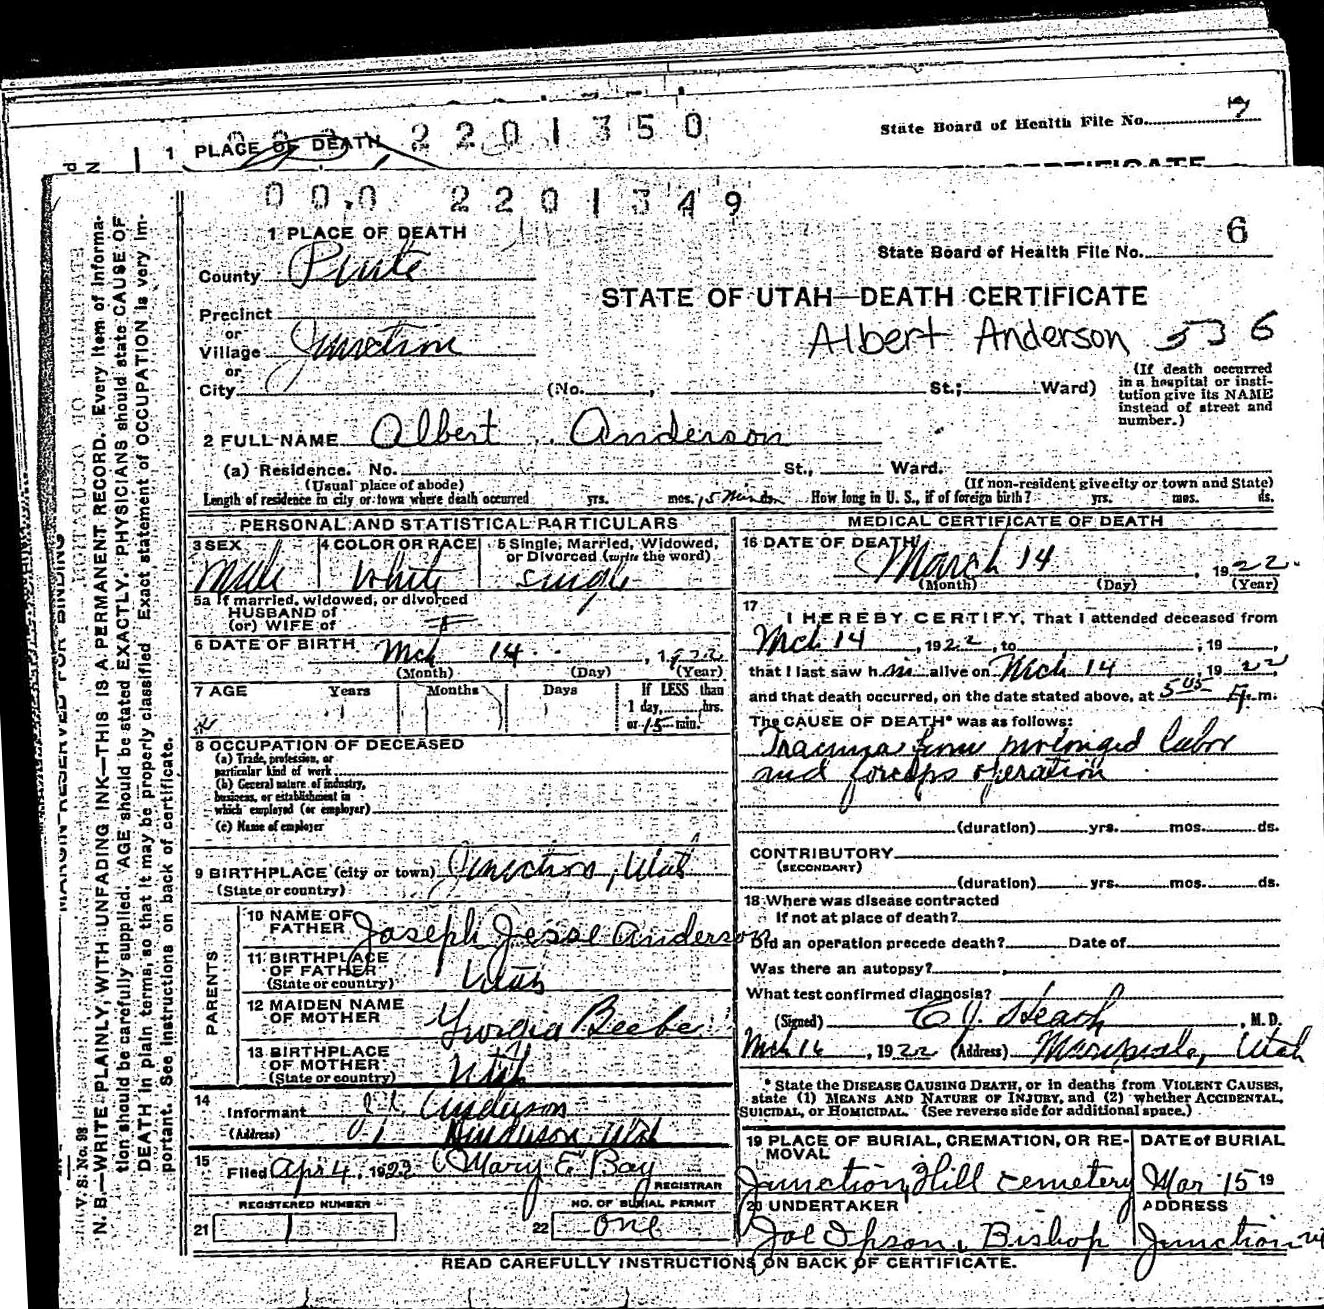 1 PLACE OF DEATH 2201350
State Board of Health File No. 7
000 2201349
1 PLACE OF DEATH
State Board of Health File No. 6
County Piute
STATE OF UTAH—DEATH CERTIFICATE
Albert Anderson 536
Precinct
or
Village Junction
or
City (No. , St.; Ward)
(If death occurred
in a hospital or insti-
tution give its NAME
instead of street and
number.)
2 FULL NAME Albert Anderson
(a) Residence. No. St., Ward.
(Usual place of abode) (If non-resident give city or town and State)
Length of residence in city or town where death occurred yrs. mos. 15 Min ds. How long in U. S., if of foreign birth? yrs. mos. ds.
PERSONAL AND STATISTICAL PARTICULARS
3 SEX 4 COLOR OR RACE 5 Single, Married, Widowed,
or Divorced (write the word)
Male White Single
5a If married, widowed, or divorced
HUSBAND of
(or) WIFE of
6 DATE OF BIRTH Mch 14 , 1922
(Month) (Day) (Year)
7 AGE Years Months Days If LESS than
1 day, hrs.
or 15 min.
8 OCCUPATION OF DECEASED
(a) Trade, profession, or
particular kind of work
(b) General nature of industry,
business, or establishment in
which employed (or employer)
(c) Name of employer
9 BIRTHPLACE (city or town) Junction, Utah
(State or country)
PARENTS
10 NAME OF
FATHER Joseph Jesse Anderson
11 BIRTHPLACE
OF FATHER
(State or country) Utah
12 MAIDEN NAME
OF MOTHER Georgia Beebe
13 BIRTHPLACE
OF MOTHER
(State or country) Utah
14
Informant Anderson
(Address) Utah
15
Filed Apr 4, 1923 Mary E Bay
REGISTRAR
REGISTERED NUMBER NO. OF BURIAL PERMIT
21 1 22 One
MEDICAL CERTIFICATE OF DEATH
16 DATE OF DEATH
March 14 , 1922.
(Month) (Day) (Year)
17
I HEREBY CERTIFY, That I attended deceased from
Mch 14 , 1922, to , 19
that I last saw him alive on Mch 14 1922,
and that death occurred, on the date stated above, at 5 m.
The CAUSE OF DEATH* was as follows:
Trauma from prolonged labor
and forceps operation
(duration) yrs. mos. ds.
CONTRIBUTORY
(SECONDARY)
(duration) yrs. mos. ds.
18 Where was disease contracted
If not at place of death?
Did an operation precede death? Date of
Was there an autopsy?
What test confirmed diagnosis?
(Signed) , M. D.
Mch 16 , 1922 (Address) Utah
* State the DISEASE CAUSING DEATH, or in deaths from VIOLENT CAUSES,
state (1) MEANS AND NATURE OF INJURY, and (2) whether ACCIDENTAL,
SUICIDAL, or HOMICIDAL. (See reverse side for additional space.)
19 PLACE OF BURIAL, CREMATION, OR RE-
MOVAL
DATE of BURIAL
Junction, Hill cemetery Mar 15 19
20 UNDERTAKER ADDRESS
Joe Ipson, Bishop Junction
READ CAREFULLY INSTRUCTIONS ON BACK OF CERTIFICATE.
V. S. No. 98
MARGIN RESERVED FOR BINDING
N. B.—WRITE PLAINLY, WITH UNFADING INK—THIS IS A PERMANENT RECORD. Every item of informa-
tion should be carefully supplied. AGE should be stated EXACTLY. PHYSICIANS should state CAUSE OF
DEATH in plain terms, so that it may be properly classified. Exact statement of OCCUPATION is very im-
portant. See instructions on back of certificate.